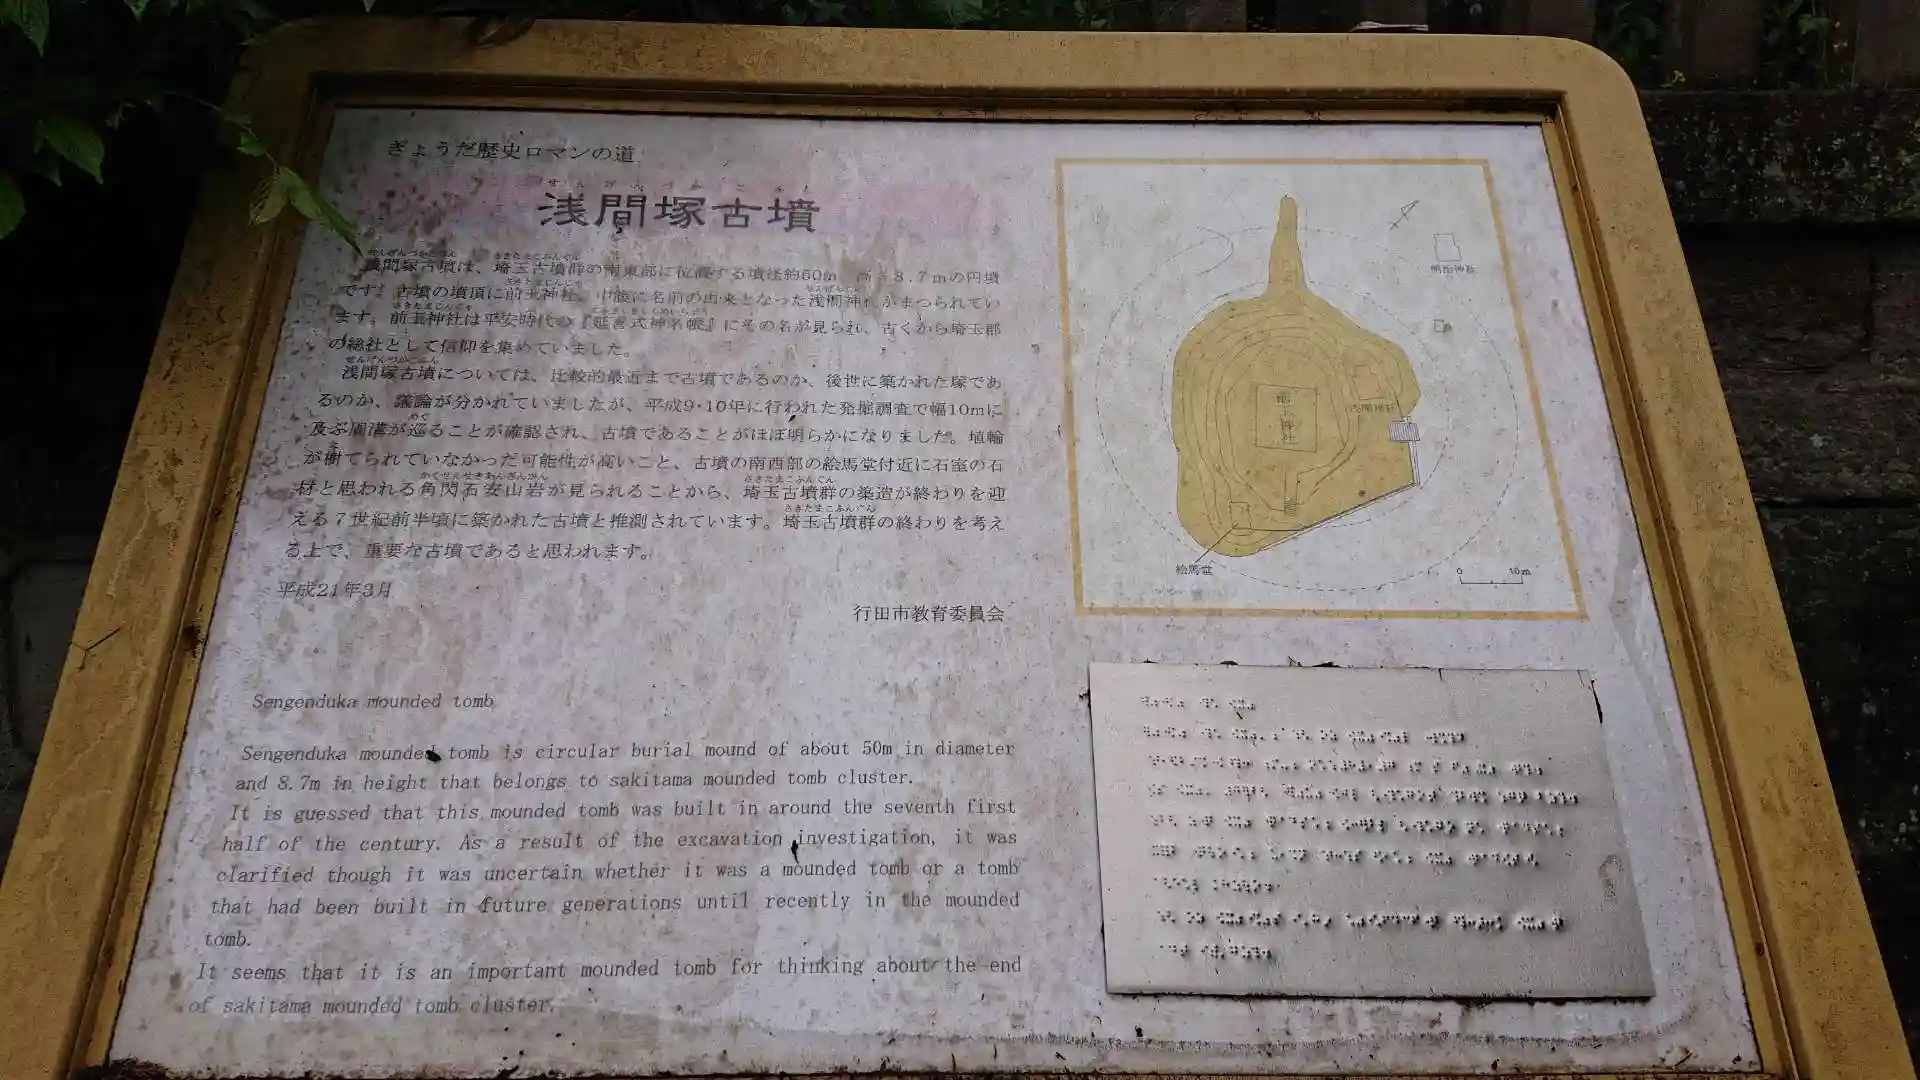 ぎょうだ歴史ロマンの道
せんげんづかこふん
浅間塚古墳
浅間塚古墳は、埼玉古墳群の南東部に位置する墳径約50m、高さ8.7mの円墳
です。古墳の墳頂に前玉神社、中腹に名前の由来となった浅間神社がまつられてい
ます。前玉神社は平安時代の『延喜式神名帳』にその名が見られ、古くから埼玉郡
の総社として信仰を集めていました。
浅間塚古墳については、比較的最近まで古墳であるのか、後世に築かれた塚であ
るのか、議論が分かれていましたが、平成9・10年に行われた発掘調査で幅10mに
及ぶ周溝が巡ることが確認され、古墳であることがほぼ明らかになりました。埴輪
が樹てられていなかった可能性が高いこと、古墳の南西部の絵馬堂付近に石室の石
材と思われる角閃石安山岩が見られることから、埼玉古墳群の築造が終わりを迎
える7世紀前半頃に築かれた古墳と推測されています。埼玉古墳群の終わりを考え
る上で、重要な古墳であると思われます。
平成21年3月
行田市教育委員会
Sengenduka mounded tomb
Sengenduka mounded tomb is circular burial mound of about 50m in diameter
and 8.7m in height that belongs to sakitama mounded tomb cluster.
It is guessed that this mounded tomb was built in around the seventh first
half of the century. As a result of the excavation investigation, it was
clarified though it was uncertain whether it was a mounded tomb or a tomb
that had been built in future generations until recently in the mounded
tomb.
It seems that it is an important mounded tomb for thinking about the end
of sakitama mounded tomb cluster.
前玉神社
絵馬堂
0 10m